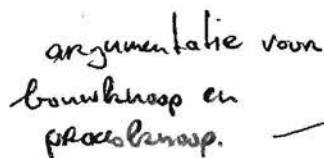 argumentatie voor
bouwknoop en
procesknoop.